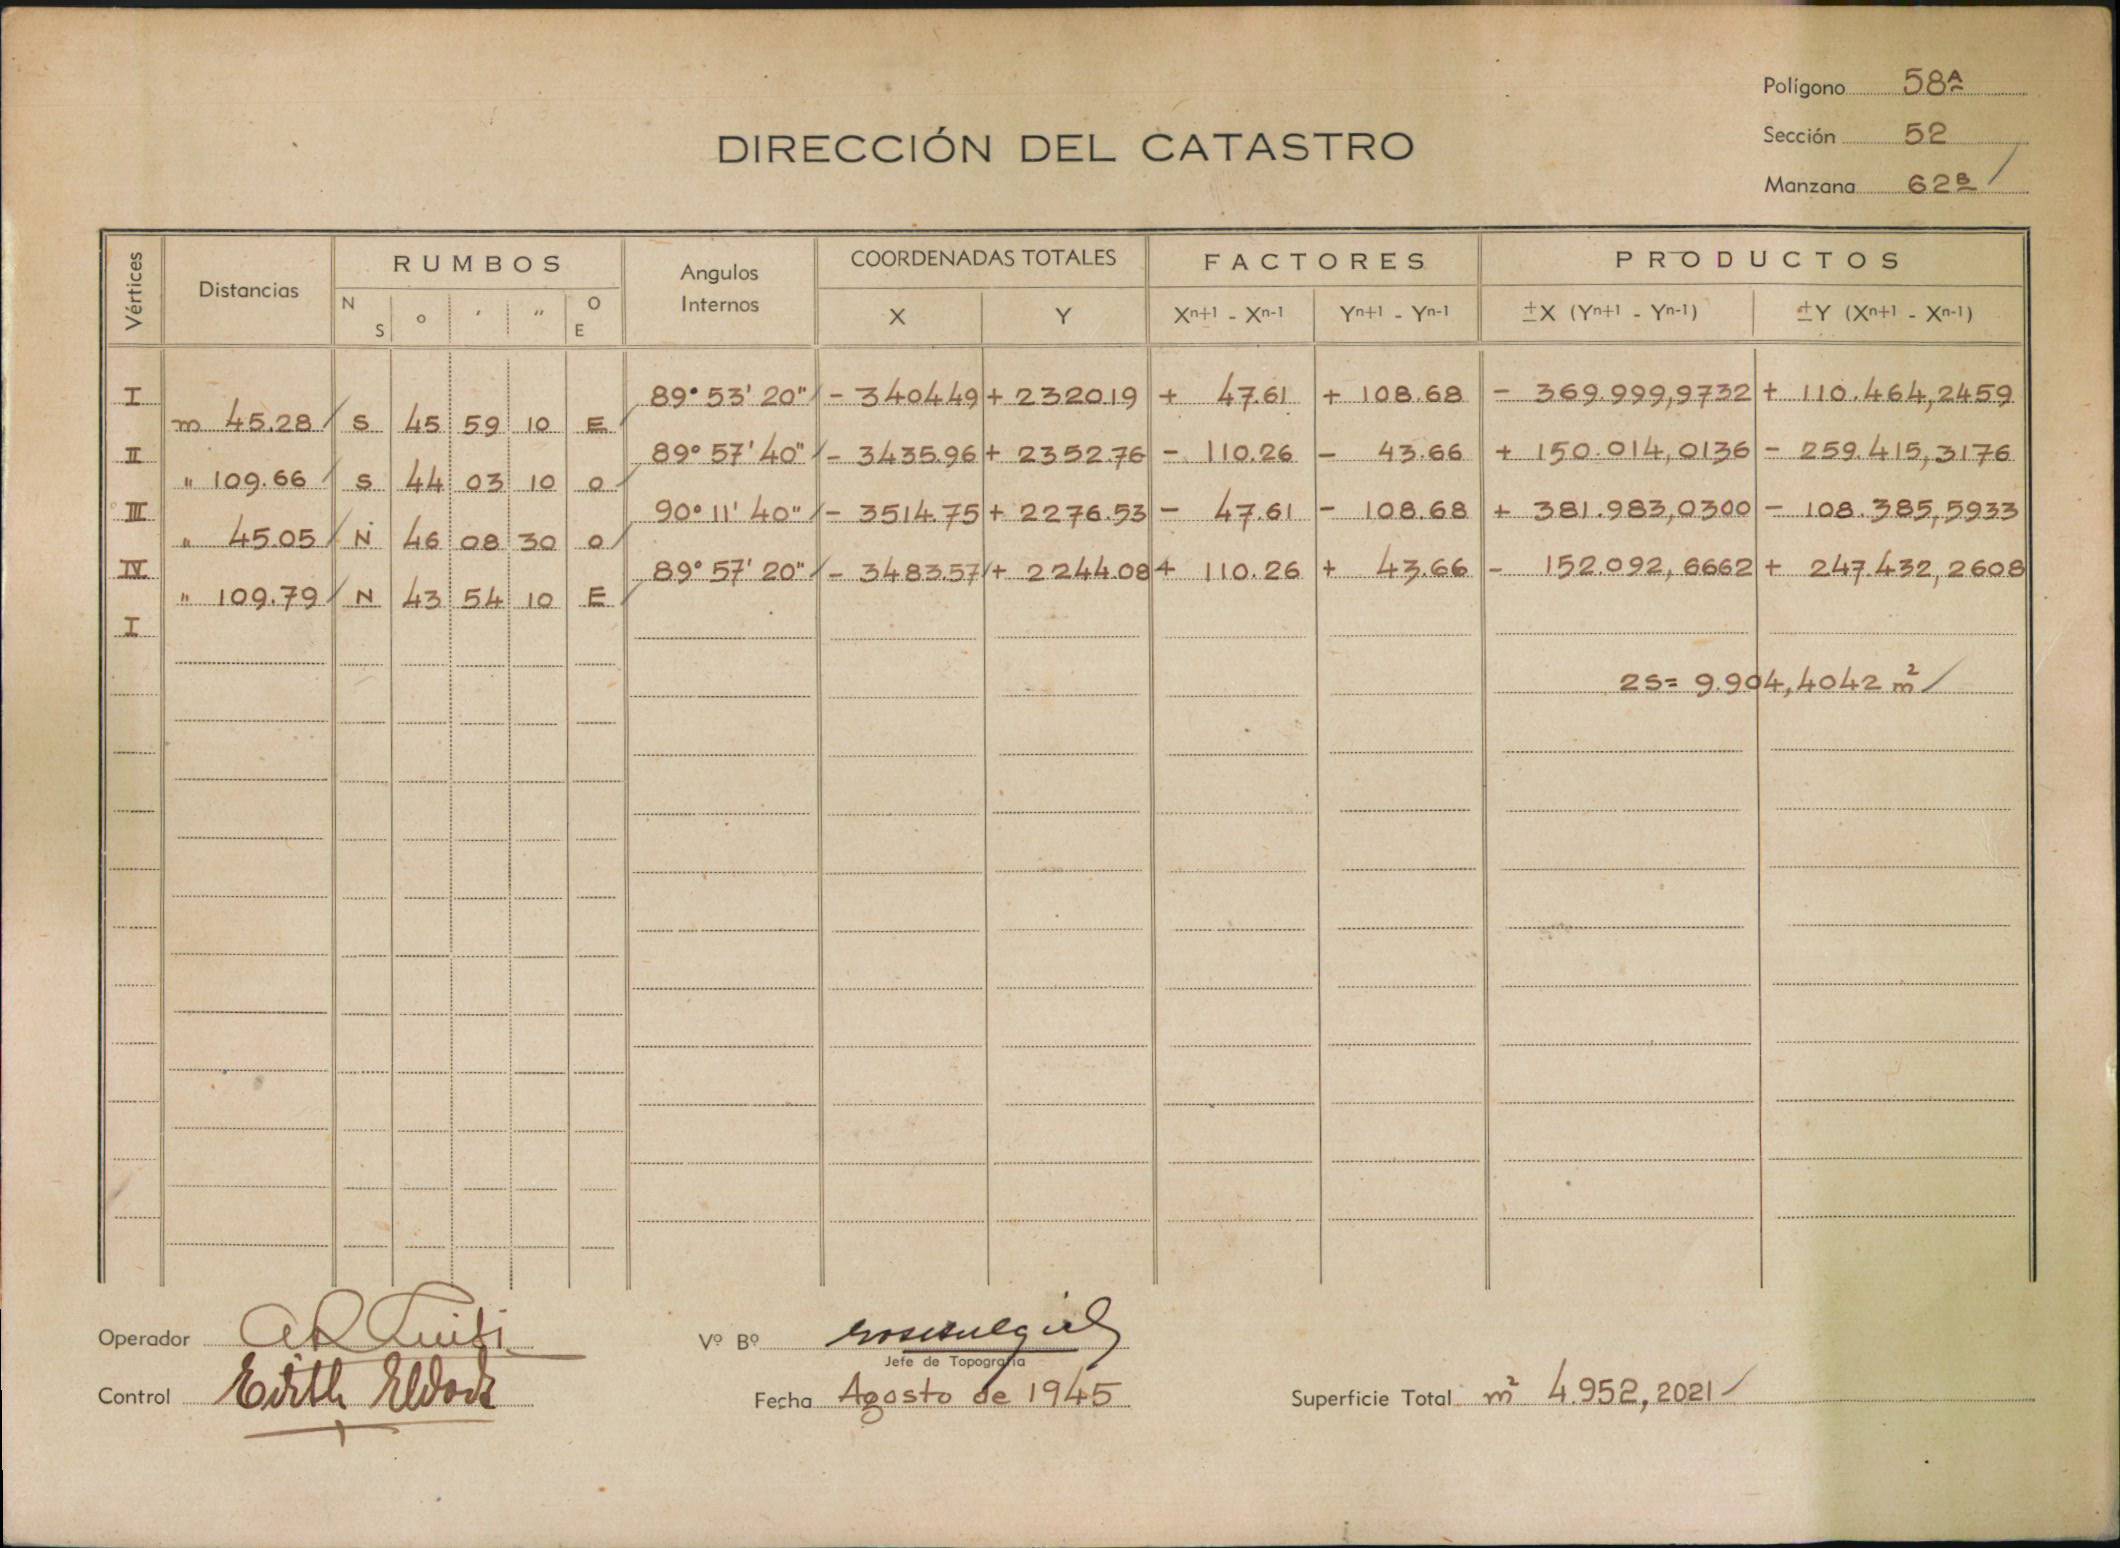 Polígono 58ᴬ
DIRECCIÓN DEL CATASTRO
Sección 52
Manzana 62ᴮ
Vértices Distancias RUMBOS Angulos Internos COORDENADAS TOTALES FACTORES PRODUCTOS
N S o ' " O E X Y Xⁿ⁺¹ - Xⁿ⁻¹ Yⁿ⁺¹ - Yⁿ⁻¹ ±X (Yⁿ⁺¹ - Yⁿ⁻¹) ±Y (Xⁿ⁺¹ - Xⁿ⁻¹)
I 89° 53' 20" - 340449 + 232019 + 47.61 + 108.68 - 369.999,9732 + 110.464,2459
m 45.28 S 45 59 10 E
II 89° 57' 40" - 3435.96 + 2352.76 - 110.26 - 43.66 + 150.014,0136 - 259.415,3176
" 109.66 S 44 03 10 O
III 90° 11' 40" - 3514.75 + 2276.53 - 47.61 - 108.68 + 381.983,0300 - 108.385,5933
" 45.05 N 46 08 30 O
IV 89° 57' 20" - 3483.57 + 2244.08 + 110.26 + 43.66 - 152.092,6662 + 247.432,2608
" 109.79 N 43 54 10 E
I
2S= 9.904,4042 m²
Operador
Vº Bº
Jefe de Topografía
Control Edith
Fecha Agosto de 1945
Superficie Total m² 4.952,2021